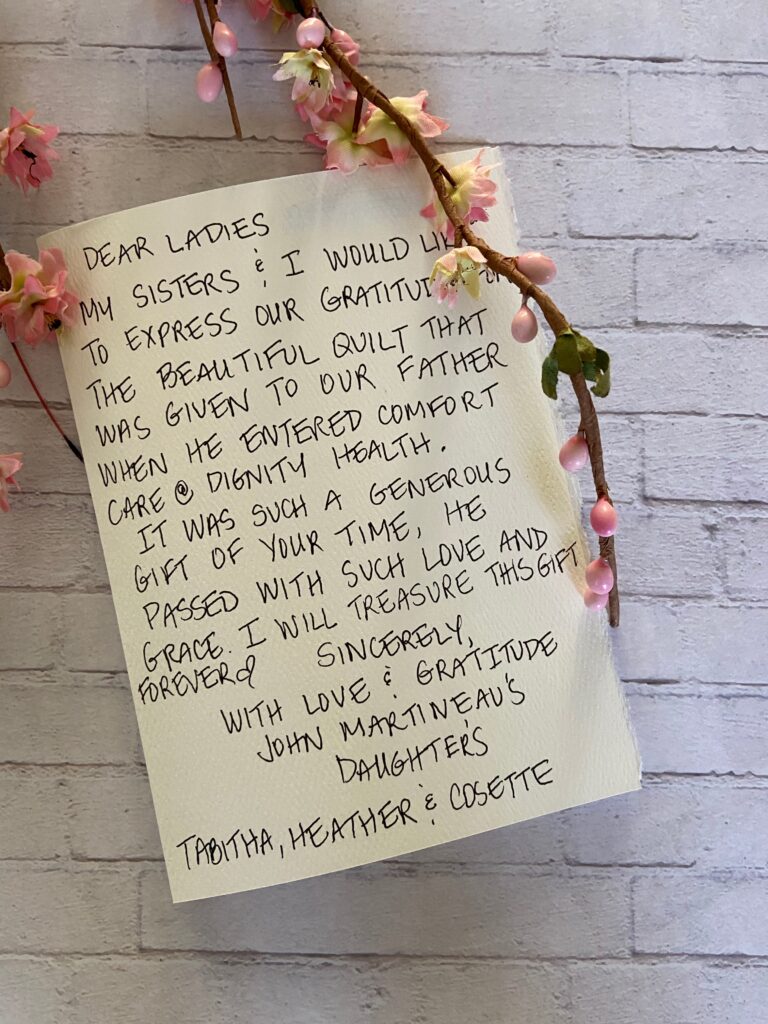 DEAR LADIES
MY SISTERS & I WOULD
TO EXPRESS OUR GRATITUDE
THE BEAUTIFUL QUILT THAT
WAS GIVEN TO OUR FATHER
WHEN HE ENTERED COMFORT
CARE @ DIGNITY HEALTH.
IT WAS SUCH A GENEROUS
GIFT OF YOUR TIME, HE
PASSED WITH SUCH LOVE AND
GRACE. I WILL TREASURE THIS GIFT
FOREVER♡ SINCERELY,
WITH LOVE & GRATITUDE
JOHN MARTINEAU'S
DAUGHTER'S
TABITHA, HEATHER & COSETTE